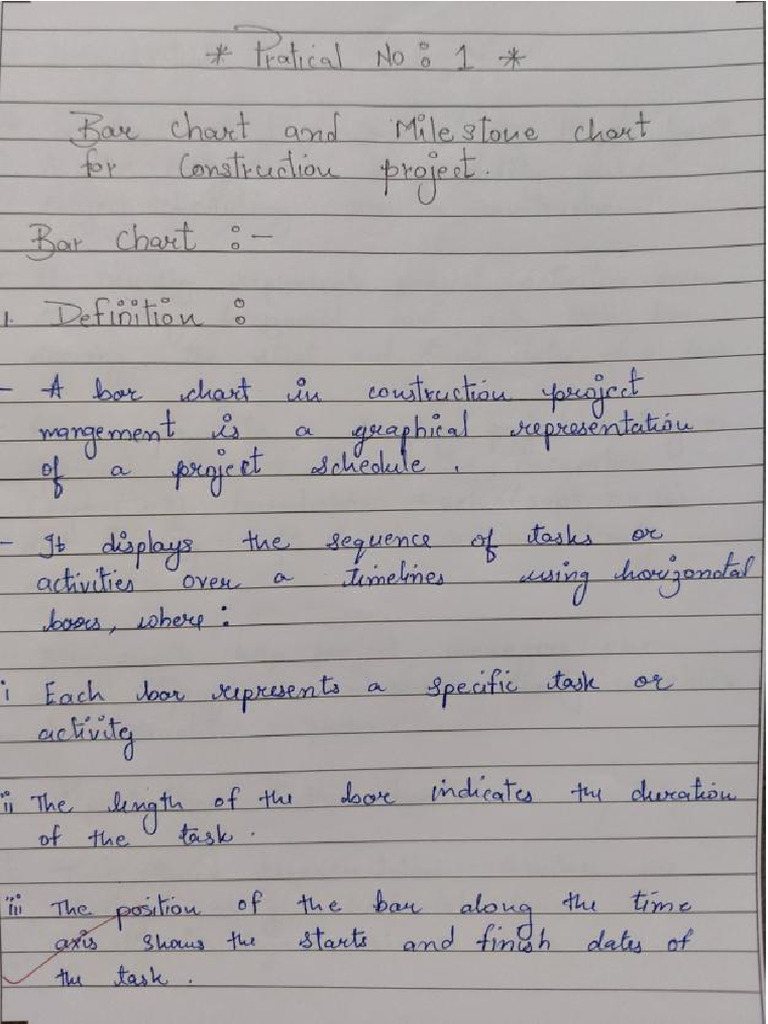 * Pratical No : 1 *
Bar chart and Milestone chart
for Construction project.
Bar chart :-
1. Definition :
- A bar chart in construction project
mangement is a graphical representation
of a project schedule .
- It displays the sequence of tasks or
activities over a timelines using horizonatal
bars, where :
i Each bar represents a specific task or
activity
ii The length of the bar indicates the duration
of the task .
iii The position of the bar along the time
axis shows the starts and finish dates of
the task .